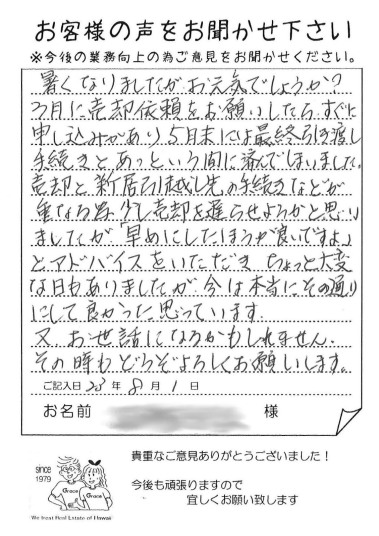 お客様の声をお聞かせ下さい
※今後の業務向上の為ご意見をお聞かせください。
暑くなりましたがお元気でしょうか?
3月に売却依頼をお願いしたらすぐに
申し込みがあり5月末には最終引き渡し
手続きと、あっという間に済んでしまいました。
売却と新居引越し先の手続きなどが
重なる為、少し売却を遅らせようかと思い
ましたが「早めにしたほうが良いですよ」
とアドバイスをいただき ちょっと大変
な日もありましたが、今は本当にその通り
にして良かったと思っています。
又、お世話になるかもしれません。
その時もどうぞよろしくお願いします。
ご記入日 年 8 月 1 日
お名前 様
since
1979
Grace
Grace
We treat Real Estate of Hawaii
貴重なご意見ありがとうございました!
今後も頑張りますので
宜しくお願い致します